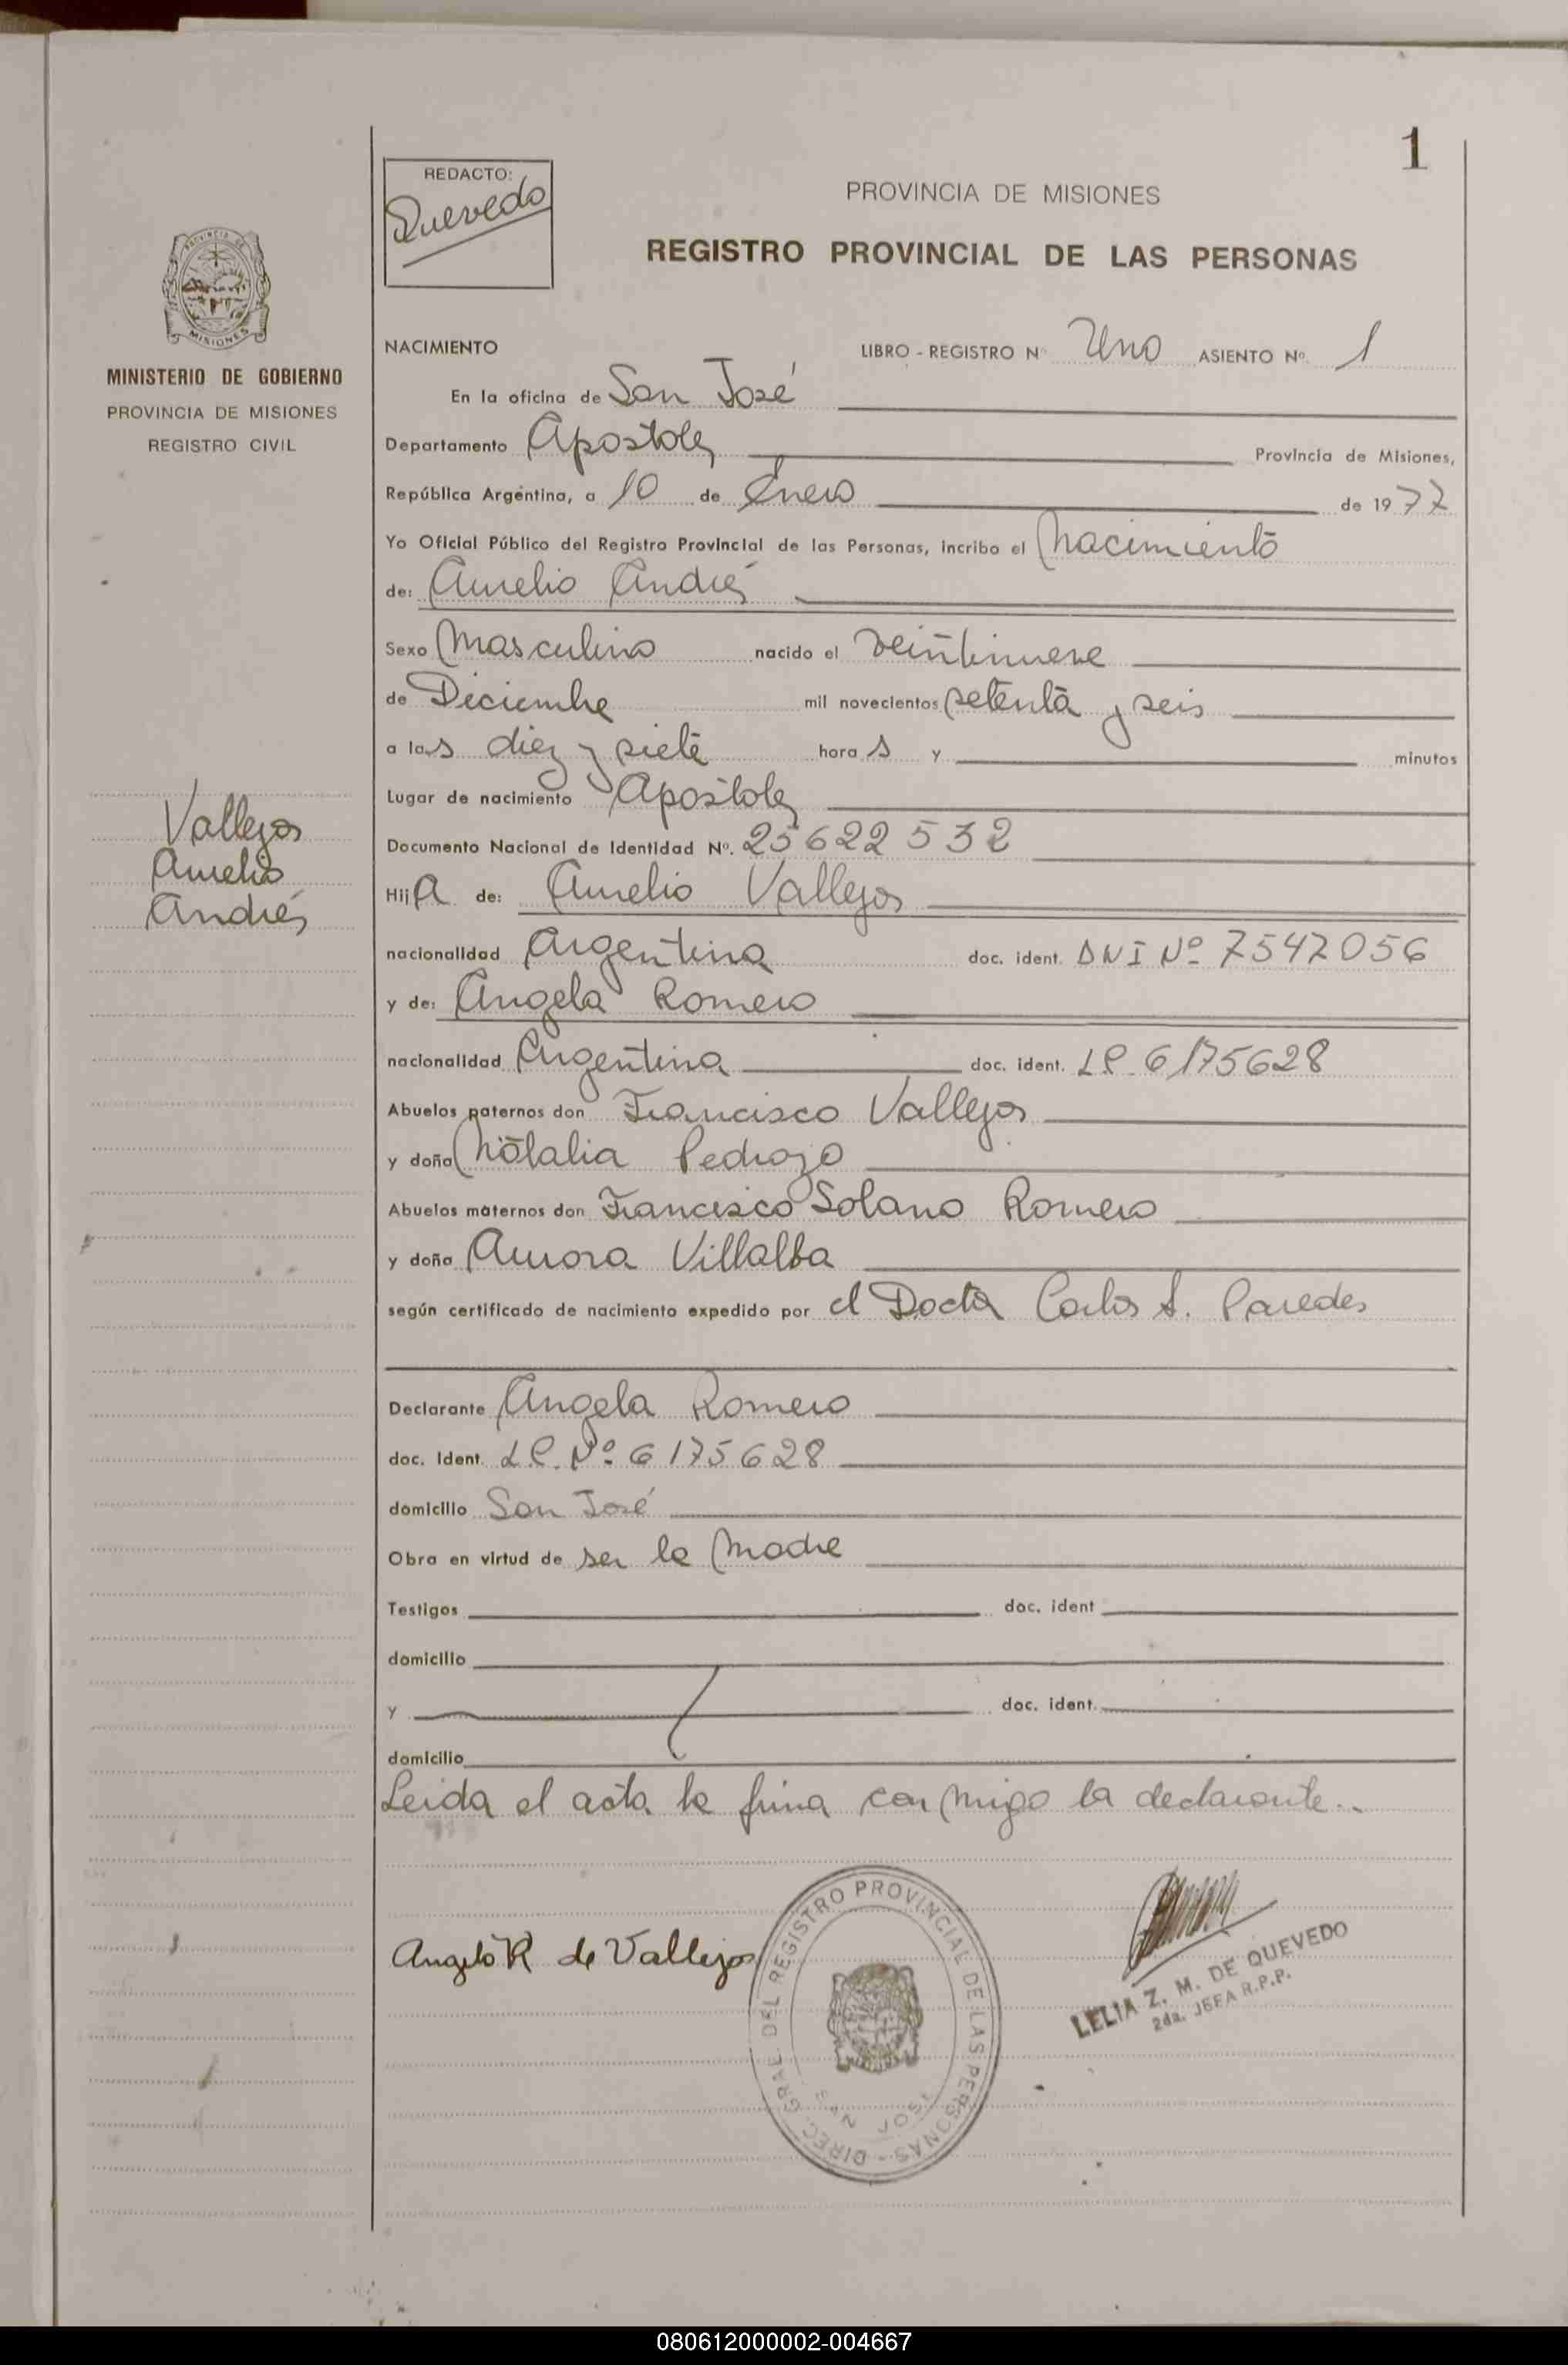 1
REDACTO:
Quevedo
PROVINCIA DE MISIONES
REGISTRO PROVINCIAL DE LAS PERSONAS
PROVINCIA DE
MISIONES
MINISTERIO DE GOBIERNO
PROVINCIA DE MISIONES
REGISTRO CIVIL
NACIMIENTO LIBRO - REGISTRO Nº Uno ASIENTO Nº 1
En la oficina de San José
Departamento Apostoles Provincia de Misiones,
República Argentina, a 10 de Enero de 1977
Yo Oficial Público del Registro Provincial de las Personas, incribo el Nacimiento
de: Aurelio Andrés
Sexo Masculino nacido el veintinueve
de Diciembre mil novecientos setenta y seis
a las diez y siete horas y minutos
Lugar de nacimiento Apostoles
Documento Nacional de Identidad Nº. 25622532
Vallejos
Aurelio
Andrés
Hija de: Aurelio Vallejos
nacionalidad Argentina doc. ident. DNI Nº 7542056
y de: Angela Romero
nacionalidad Argentina doc. ident. LC. 6175628
Abuelos paternos don Francisco Vallejos
y doña Natalia Pedrozo
Abuelos maternos don Francisco Solano Romero
y doña Aurora Villalba
según certificado de nacimiento expedido por el Doctor Carlos A. Paredes
Declarante Angela Romero
doc. Ident. LC. Nº 6175628
domicilio San José
Obra en virtud de ser la Madre
Testigos doc. ident
domicilio
y doc. ident.
domicilio
Leida el acta la firma conmigo la declarante..
Angela R de Vallejos
DIREC. GRAL. DEL REGISTRO PROVINCIAL DE LAS PERSONAS -
SAN JOSE
LELIA Z. M. DE QUEVEDO
2da. JEFA R.P.P.
080612000002-004667